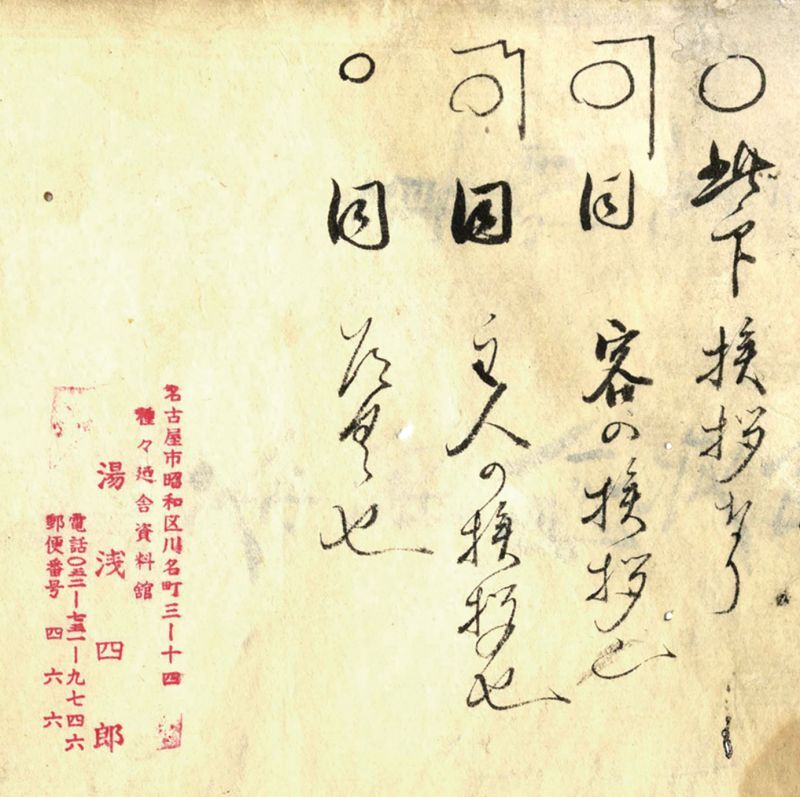 ○此下 挨拶なり
○同 客の挨拶也
○同 主人の挨拶也
○ 同 道具也
名古屋市昭和区川名町三ー十四
種々廼舎資料館
湯浅四郎
電話〇五二ー七五一ー九七四六
郵便番号 四六六